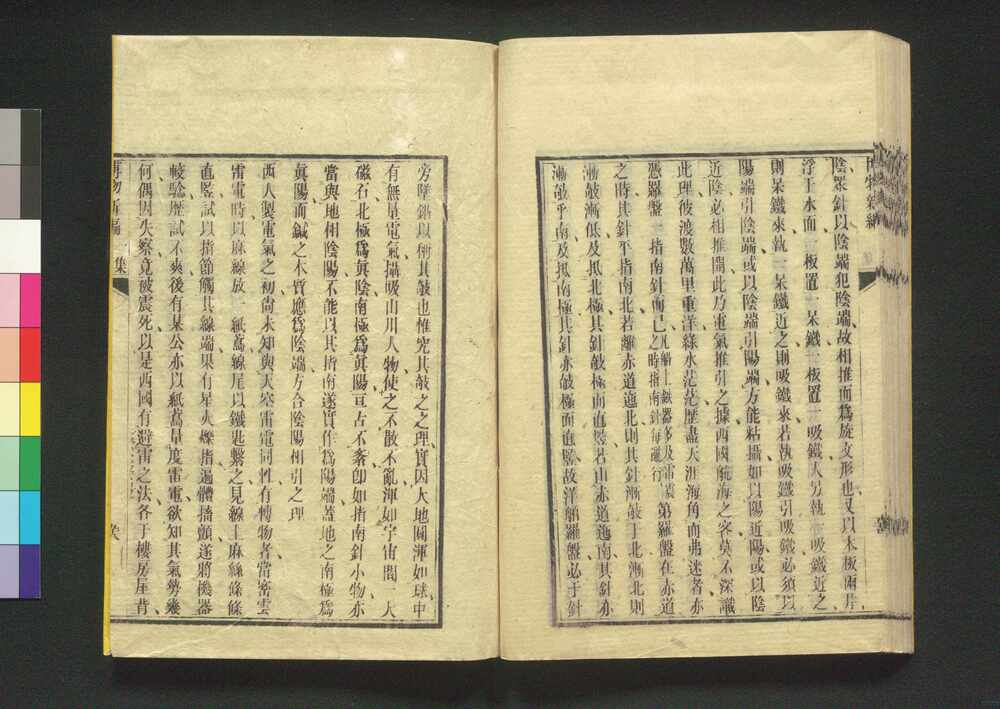 博物新編
陰聚針以陰端犯陰端故相推而爲旋文形也又以木板兩片
浮于水面一板置一呆鐵一板置一吸鐵人另執一吸鐵近之
則呆鐵來執一呆鐵近之則吸鐵來若執吸鐵引吸鐵必須以
陽端引陰端或以陰端引陽端方能粘攝如以陽近陽或以陰
近陰必相推開此乃電氣推引之據西國航海之客莫不深識
此理彼渡數萬里重洋綠水茫茫歷盡天涯海角而弗迷者亦
憑羅盤一指南針而已凡船上鐵器多及雷震之時指南針每亂行第羅盤在赤道
之時其針平指南北若離赤道迤北則其針漸敧于北漸北則
漸敧漸低及抵北極其針敧極而直豎若由赤道迤南其針亦
漸敧乎南及抵南極其針亦敧極而直豎故洋船羅盤必于針
旁墜鉛以衡其敧也惟究其敧之之理實因大地圓渾如球中
有無量電氣攝吸山川人物使之不散不亂渾如宇宙間一大
磁石北極爲眞陰南極爲眞陽亘古不紊卽如指南針小物亦
當與地相陰陽不能以其指南遂實作爲陽端蓋地之南極爲
眞陽而鍼之本質應爲陰端方合陰陽相引之理
西人製電氣之初尙未知與天空雷電同性有博物者當密雲
雷電時以麻線放一紙鳶線尾以鐵匙繫之見線上麻絲條條
直豎試以指節觸其線端果有星火爍指遍體搐顫遂將機器
較驗歷試不爽後有某公亦以紙鳶量度雷電欲知其氣勢幾
何偶因失察竟被震死以是西國有避雷之法各于樓房屋背
博物新編 一集